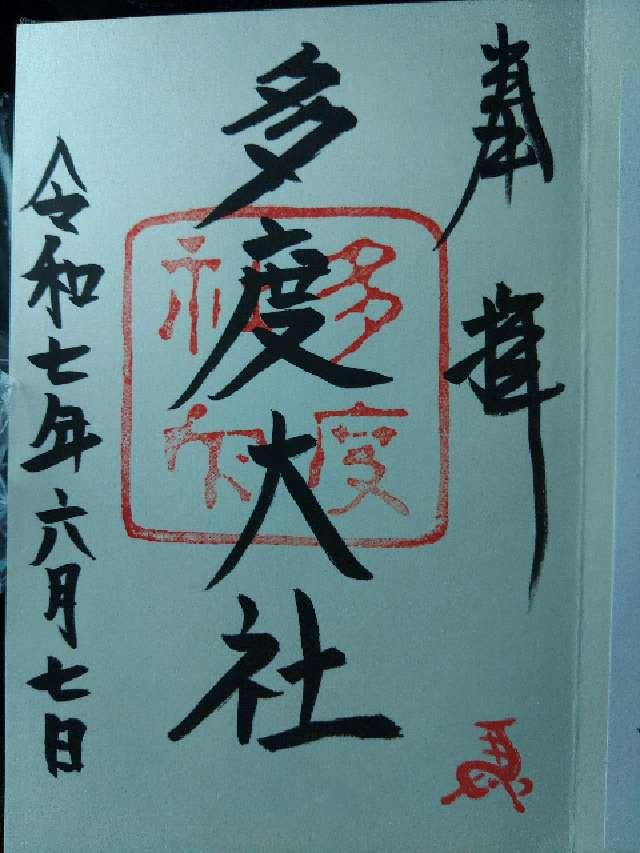 奉拝
多度大社
多度
神社
令和七年六月七日
馬